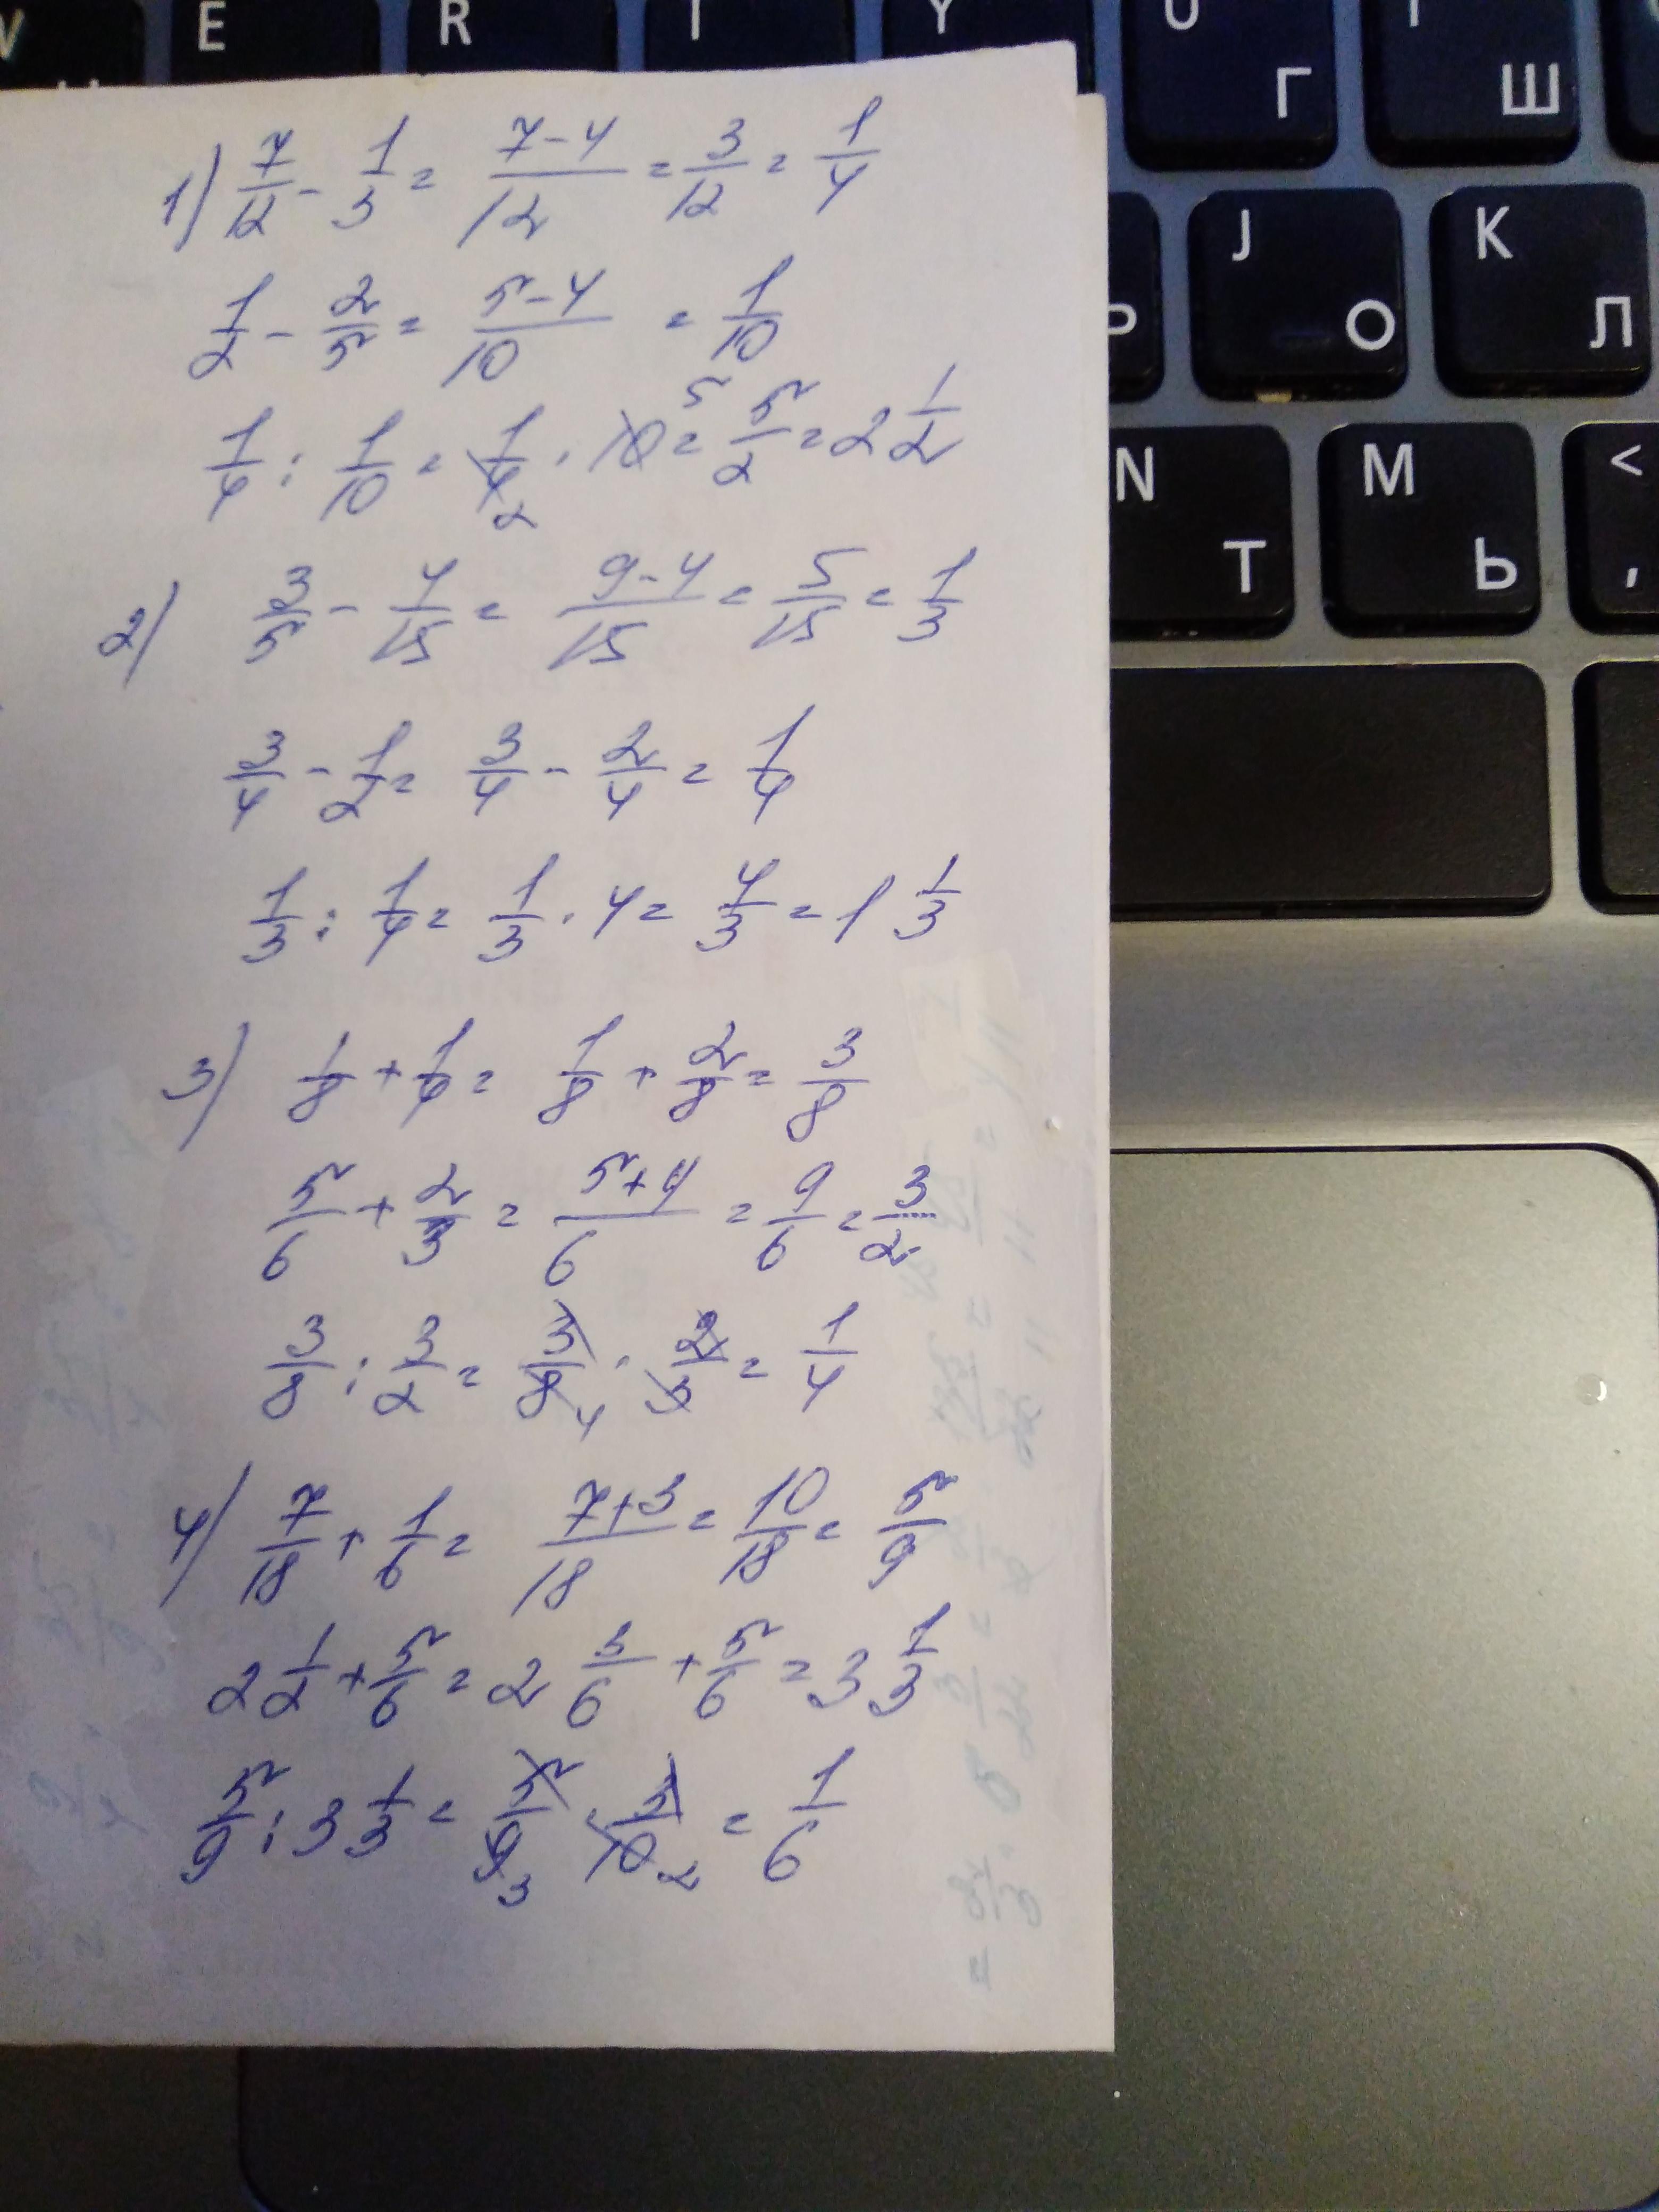 E R T Y U Г Ш
J О K Л
N Т M Ь < ,
1) 7/12 - 1/3 = (7-4)/12 = 3/12 = 1/4
1/2 - 2/5 = (5-4)/10 = 1/10
1/4 : 1/10 = 1/4 2 · 10 5 = 5/2 = 2 1/2
2) 3/5 - 4/15 = (9-4)/15 = 5/15 = 1/3
3/4 - 1/2 = 3/4 - 2/4 = 1/4
1/3 : 1/4 = 1/3 · 4 = 4/3 = 1 1/3
3) 1/8 + 1/4 = 1/8 + 2/8 = 3/8
5/6 + 2/3 = (5+4)/6 = 9/6 = 3/2
3/8 : 3/2 = 3/8 4 · 2/3 = 1/4
4) 7/18 + 1/6 = (7+3)/18 = 10/18 = 5/9
2 1/2 + 5/6 = 2 3/6 + 5/6 = 3 1/3
5/9 : 3 1/3 = 5/9 3 · 3/10 2 = 1/6